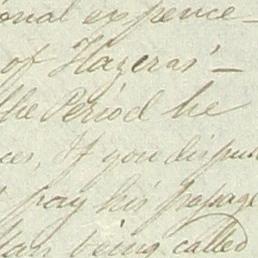 onal expence_
of Hazeras'_
the Period he
ces, If you dispu
pay his passage
Man being called